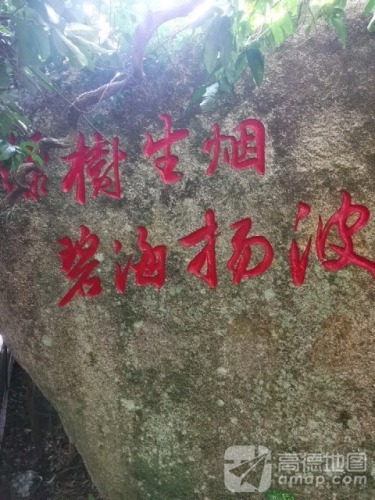 樹生烟
碧海扬波
高德地图
amap.com